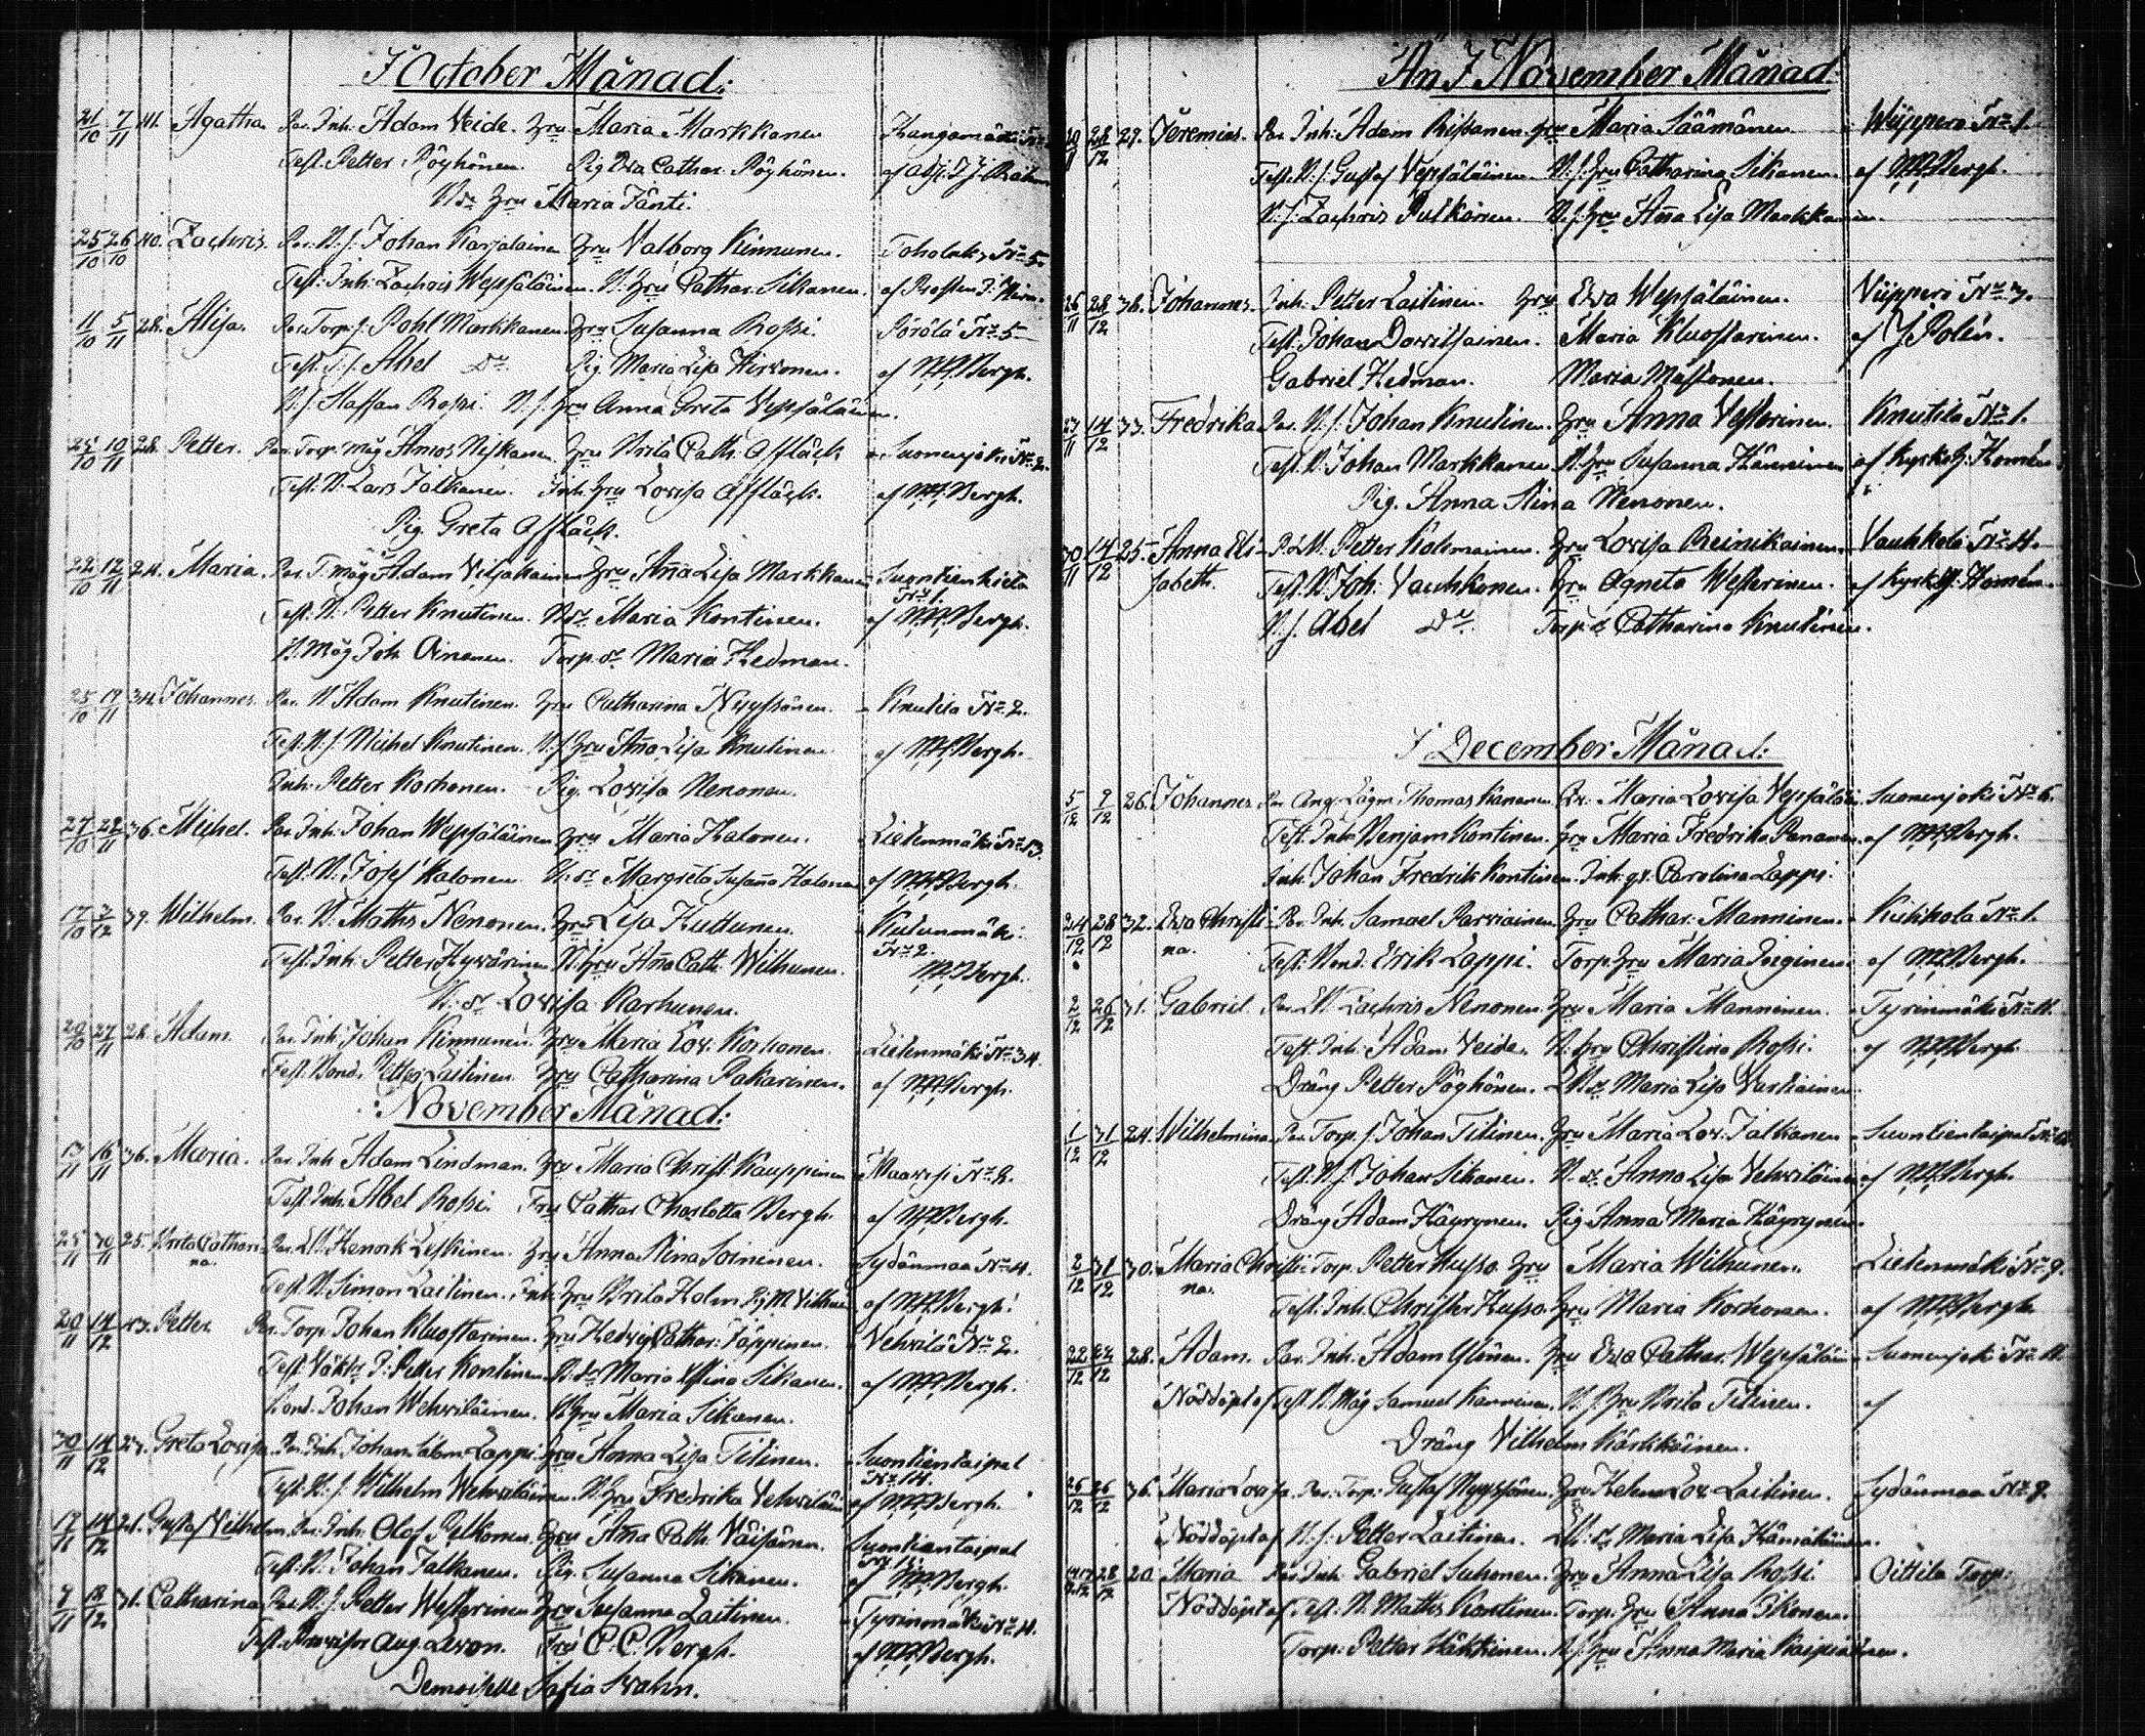 I October Månad:
21/10 7/11 41. Agatha. Par. Inh. Adam Veide. Hru Maria Markkanen Kangamäki N:o
Test. Petter Pöyhönen. Pig. Eva Cathar. Pöyhönen. af
B.dr Hru Maria Janti.
25/10 26/10 40. Zachris. Par. B.s. Johan Karjalainen Hru Valborg Kinnunen. Toholaks N:o 5.
Test. Inh. Zachris Wepsäläinen. B. Hru Cathar. Sikanen. af Prosten
11/10 5/11 28. Alisa. Par. Torp.s. Pohl Markkanen Hru Susanna Rossi. Pörölä N:o 5
Test. T.s. Abel D:o Pig. Maria Lisa Hirvonen. af Bergh.
B.s. Staffan Rossi. B.s. Hru Anna Greta Vepsäläinen.
25/10 10/11 28. Petter. Par. Torp. måg Amos Niskanen Hru Brita Cath. Affläck Suomenjoki N:o 2.
Test. B. Lars Jalkanen. Inh. Hru Lovisa Affläck. af Bergh.
Pig. Greta Affläck.
22/10 12/11 24. Maria. Par. T. måg Adam Viljakainen Hru Anna Lisa Markkanen Suontienkieto
N:o 1.
Test. B. Petter Knutinen. B.dr Maria Kontinen. af Bergh.
B. Måg Joh. Oinonen. Torp. dr Maria Hedman.
25/10 19/11 34. Johannes. Par. B. Adam Knutinen. Hru Catharina Nyyssönen. Knutila N:o 2.
Test. B.s. Michel Knutinen. B.s. Hru Anna Lisa Knutinen af Bergh.
Inh. Petter Korhonen. Pig. Lovisa Nenonen.
27/10 22/11 36. Michel. Par. Inh. Johan Wepsäläinen Hru Maria Halonen. Lietenmäki N:o 13.
Test. B. Josef Halonen B. dr Margreta Susanna Halonen af Bergh.
17/10 3/12 39. Wilhelm. Par. B. Maths Nenonen. Hru Lisa Huttunen. Kutunmäki
N:o 2.
Test. Inh. Petter Hyvärinen B. Hru Anna Cath. Wilhunen. Bergh.
B. dr Lovisa Karhunen.
29/10 27/11 28. Adam. Par. Inh. Johan Kinnunen. Hru Maria Lov. Korhonen. Lietenmäki N:o 34.
Test. Bond. Petter Laitinen. Hru Catharina Pakarinen. af Bergh.
November Månad:
13/11 16/11 36. Maria. Par. Inh. Adam Lindman. Hru Maria Christ. Kauppinen Maavesi N:o 2.
Test. Inh. Abel Rossi. Fru Cathar. Charlotta Bergh. af Bergh.
25/11 30/11 25. Brita Cathari- Par. L.B. Henrik Leskinen. Hru Anna Stina Soininen. Sydänmaa N:o 4.
na.
Test. B. Simon Laitinen. Inh. Hru Brita Holm. Pig. M. af Bergh.
20/11 14/12 23. Petter Par. Torp. Johan Kluostarinen. Hru Hedvig Cathar. Jäppinen. Vehvilä N:o 2.
Test. Petter Kontinen B. dr Maria Stina Sikanen. af Bergh.
Bond. Johan Wehviläinen. B. Hru Maria Sikanen.
30/11 14/12 23. Greta Lovisa. Par. Inh. Johan Lappi Hru Anna Lisa Titinen. Suontientaipal
N:o 14.
Test. B.s. Wilhelm Wehviläinen. B. Hru Fredrika Vehviläinen af Bergh.
19/11 14/12 21. Gustaf Vilhelm. Par. Inh. Olof Pelkonen Hru Anna Cath. Väisänen. Suontientaipal
Test. B. Johan Jalkanen. Pig. Susanna Sikanen. af Bergh.
8/11 18/12 31. Catharina Par. B.s. Petter Westerinen Hru Susanna Laitinen. Tyrinmäki N:o 4.
Test. Provisor Aug. Levon. Fru C. C. Bergh. af Bergh.
Demoiselle Sofia Svahn.
An I November Månad:
19/11 28/12 29. Jeremias. Par. Inh. Adam Rissanen Hru Maria Säämänen. Wiippero N:o 1.
Test. B.s. Gustaf Vepsäläinen. B.s. Hru Catharina Sikanen. af Bergh.
B.s. Zachris Pulkinen. B.s. Hru Anna Lisa Markkanen.
26/11 28/12 38. Johannes. Inh. Petter Laitinen. Hru Eva Wepsäläinen. Viippero N:o 3.
Test. Johan Davitsainen. Maria Kluostarinen. af J Polén.
Gabriel Hedman. Maria Mustonen.
23/11 14/12 33. Fredrika. Par. B.s. Johan Knutinen. Hru Anna Vesterinen. Knutila N:o 1.
Test. B. Johan Markkanen. B. Hru Susanna Hänninen af Kyrkoh.
Pig. Anna Stina Nenonen.
30/11 14/12 25. Anna Eli- Petter Kolmainen. Hru Lovisa Reinikainen. Vauhkola N:o 4.
sabeth. Test. B. Joh. Vauhkonen. Hru Agneta Westerinen. af Kyrkoh.
B.s. Abel D:o Torp. dr Catharina Knutinen.
I December Månad:
5/12 9/12 26. Johannes Par. Thomas Kananen. Maria Lovisa Vepsäläin. Suomenjoki N:o 6.
Test. Inh. Benjam. Kontinen. Hru Maria Fredrika Pananen. af Bergh.
Inh. Johan Fredrik Kontinen. Inh. Carolina Lappi.
24/12 28/12 32. Eva Christi- Par. Inh. Samuel Parviainen Hru Cathar. Manninen. Kukkola N:o 1.
na. Test. Bond. Erik Lappi. Torp. Hru Maria af Bergh.
2/12 26/12 31. Gabriel. Par. L.B. Zachris Nenonen. Hru Maria Manninen. Tyrinmäki N:o 4.
Test. Inh. Adam Veide. B. Hru Christina Rossi. af Bergh.
Dräng Petter Pöyhönen. L.B. dr Maria Lisa Vartiainen.
1/12 31/12 24. Wilhelmina Par. Torp.s. Johan Titinen. Hru Maria Lov. Jalkanen Suontientaipal
Test. B.s. Johan Sikanen. B. dr Anna Lisa Vehviläinen af Bergh.
Dräng Adam Häyrynen. Pig. Anna Maria Häyrynen.
2/12 31/12 30. Maria Christi- Torp. Petter Husso Hru Maria Wilhunen. Lietenmäki N:o 9.
na. Test. Inh. Christer Husso. Hru Maria Korhonen. af Bergh
22/12 24/12 28. Adam. Par. Inh. Adam Ylönen. Hru Eva Cathar. Wepsäläin. Suomenjoki N:o 11.
Nöddöpt af Test. B. Måg Samuel Kanninen. B.s. Hru Brita Titinen. af
Dräng Vilhelm Kärkkäinen.
25/12 26/12 36. Maria Lovisa. Par. Torp. Gustaf Nyyssönen. Hru Helena Lov. Laitinen. Sydänmaa N:o 9.
Nöddöpt af B.s. Petter Laitinen. L.B. dr Maria Lisa Hämäläinen.
28/12 20. Maria Par. Inh. Gabriel Suhonen. Hru Anna Lisa Rossi Oittila Torp.
Nöddöpt af Test. B. Mathts Kontinen. Torp. Hru Anna Ikonen.
Torp. Petter Häkkinen. B.s. Hru Anna Maria Kaipiainen.